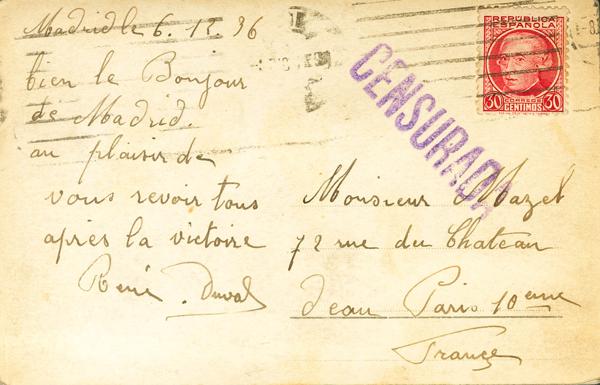 Madrid le 6. 12. 36
bien le Bonjour
de Madrid.
au plaisir de
vous revoir tous
après la victoire
René Duval
CENSURADA
REPUBLICA
ESPAÑOLA
30 CORREOS 30
CENTIMOS
Monsieur Mazel
72 rue du Chateau
d'eau Paris 10eme
France